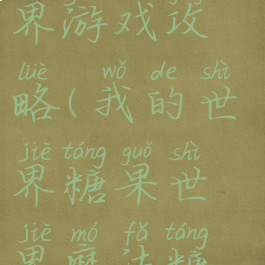 界游戏攻
lüè wǒ de shì
略(我的世
jiè táng guǒ shì
界糖果世
jiè mó fǎ táng
界魔法糖